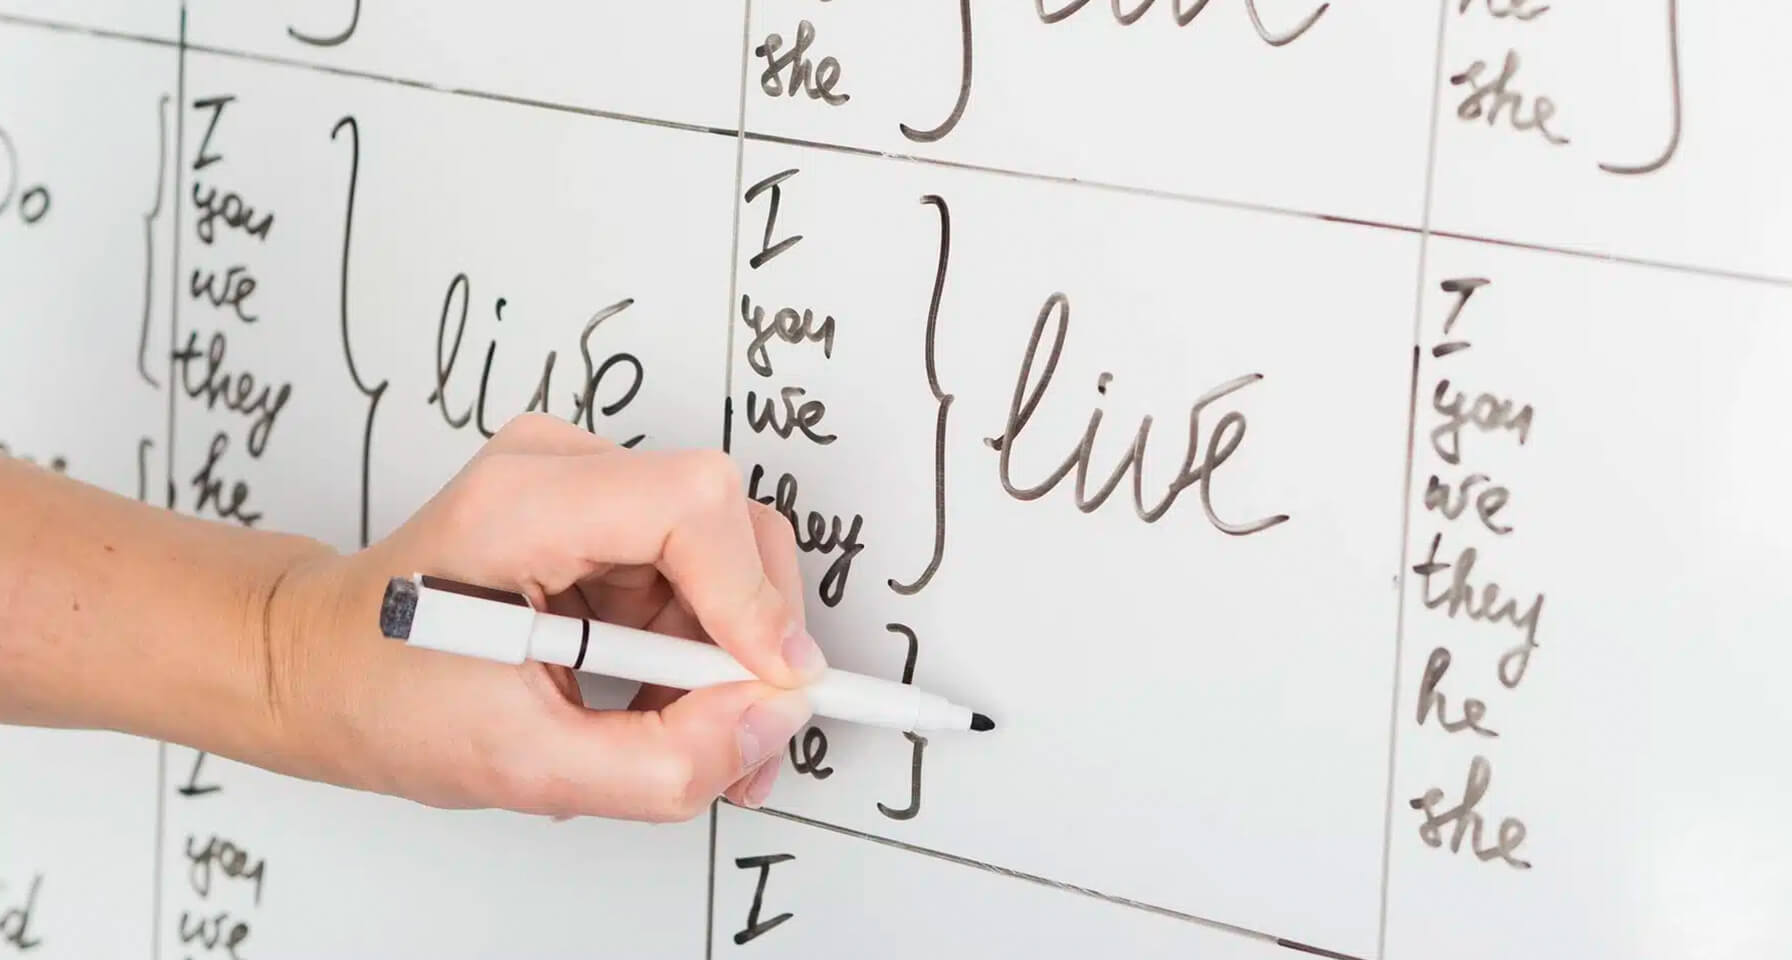 she
she
Do
I
you
we
they
he
live
I
you
we
they
live
I
you
we
they
he
she
I
you
we
I